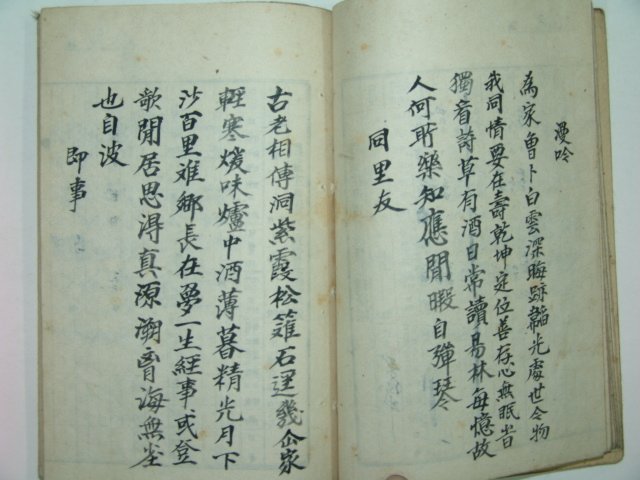 漫吟
為家曾卜白雲深晦跡韜光處世今物
我同情要在壽乾坤定位善存心無眠皆
獨看詩草有酒日常讀易林每憶故
人何所樂知應閒暇自彈琴
同里友
古老相傳洞紫霞松蘿石逕幾企家
輕寒煖味爐中酒薄暮精光月下
沙百里难鄉長在夢一生經事或登
歌閒居思得真源溯學海無坐
也自波
即事